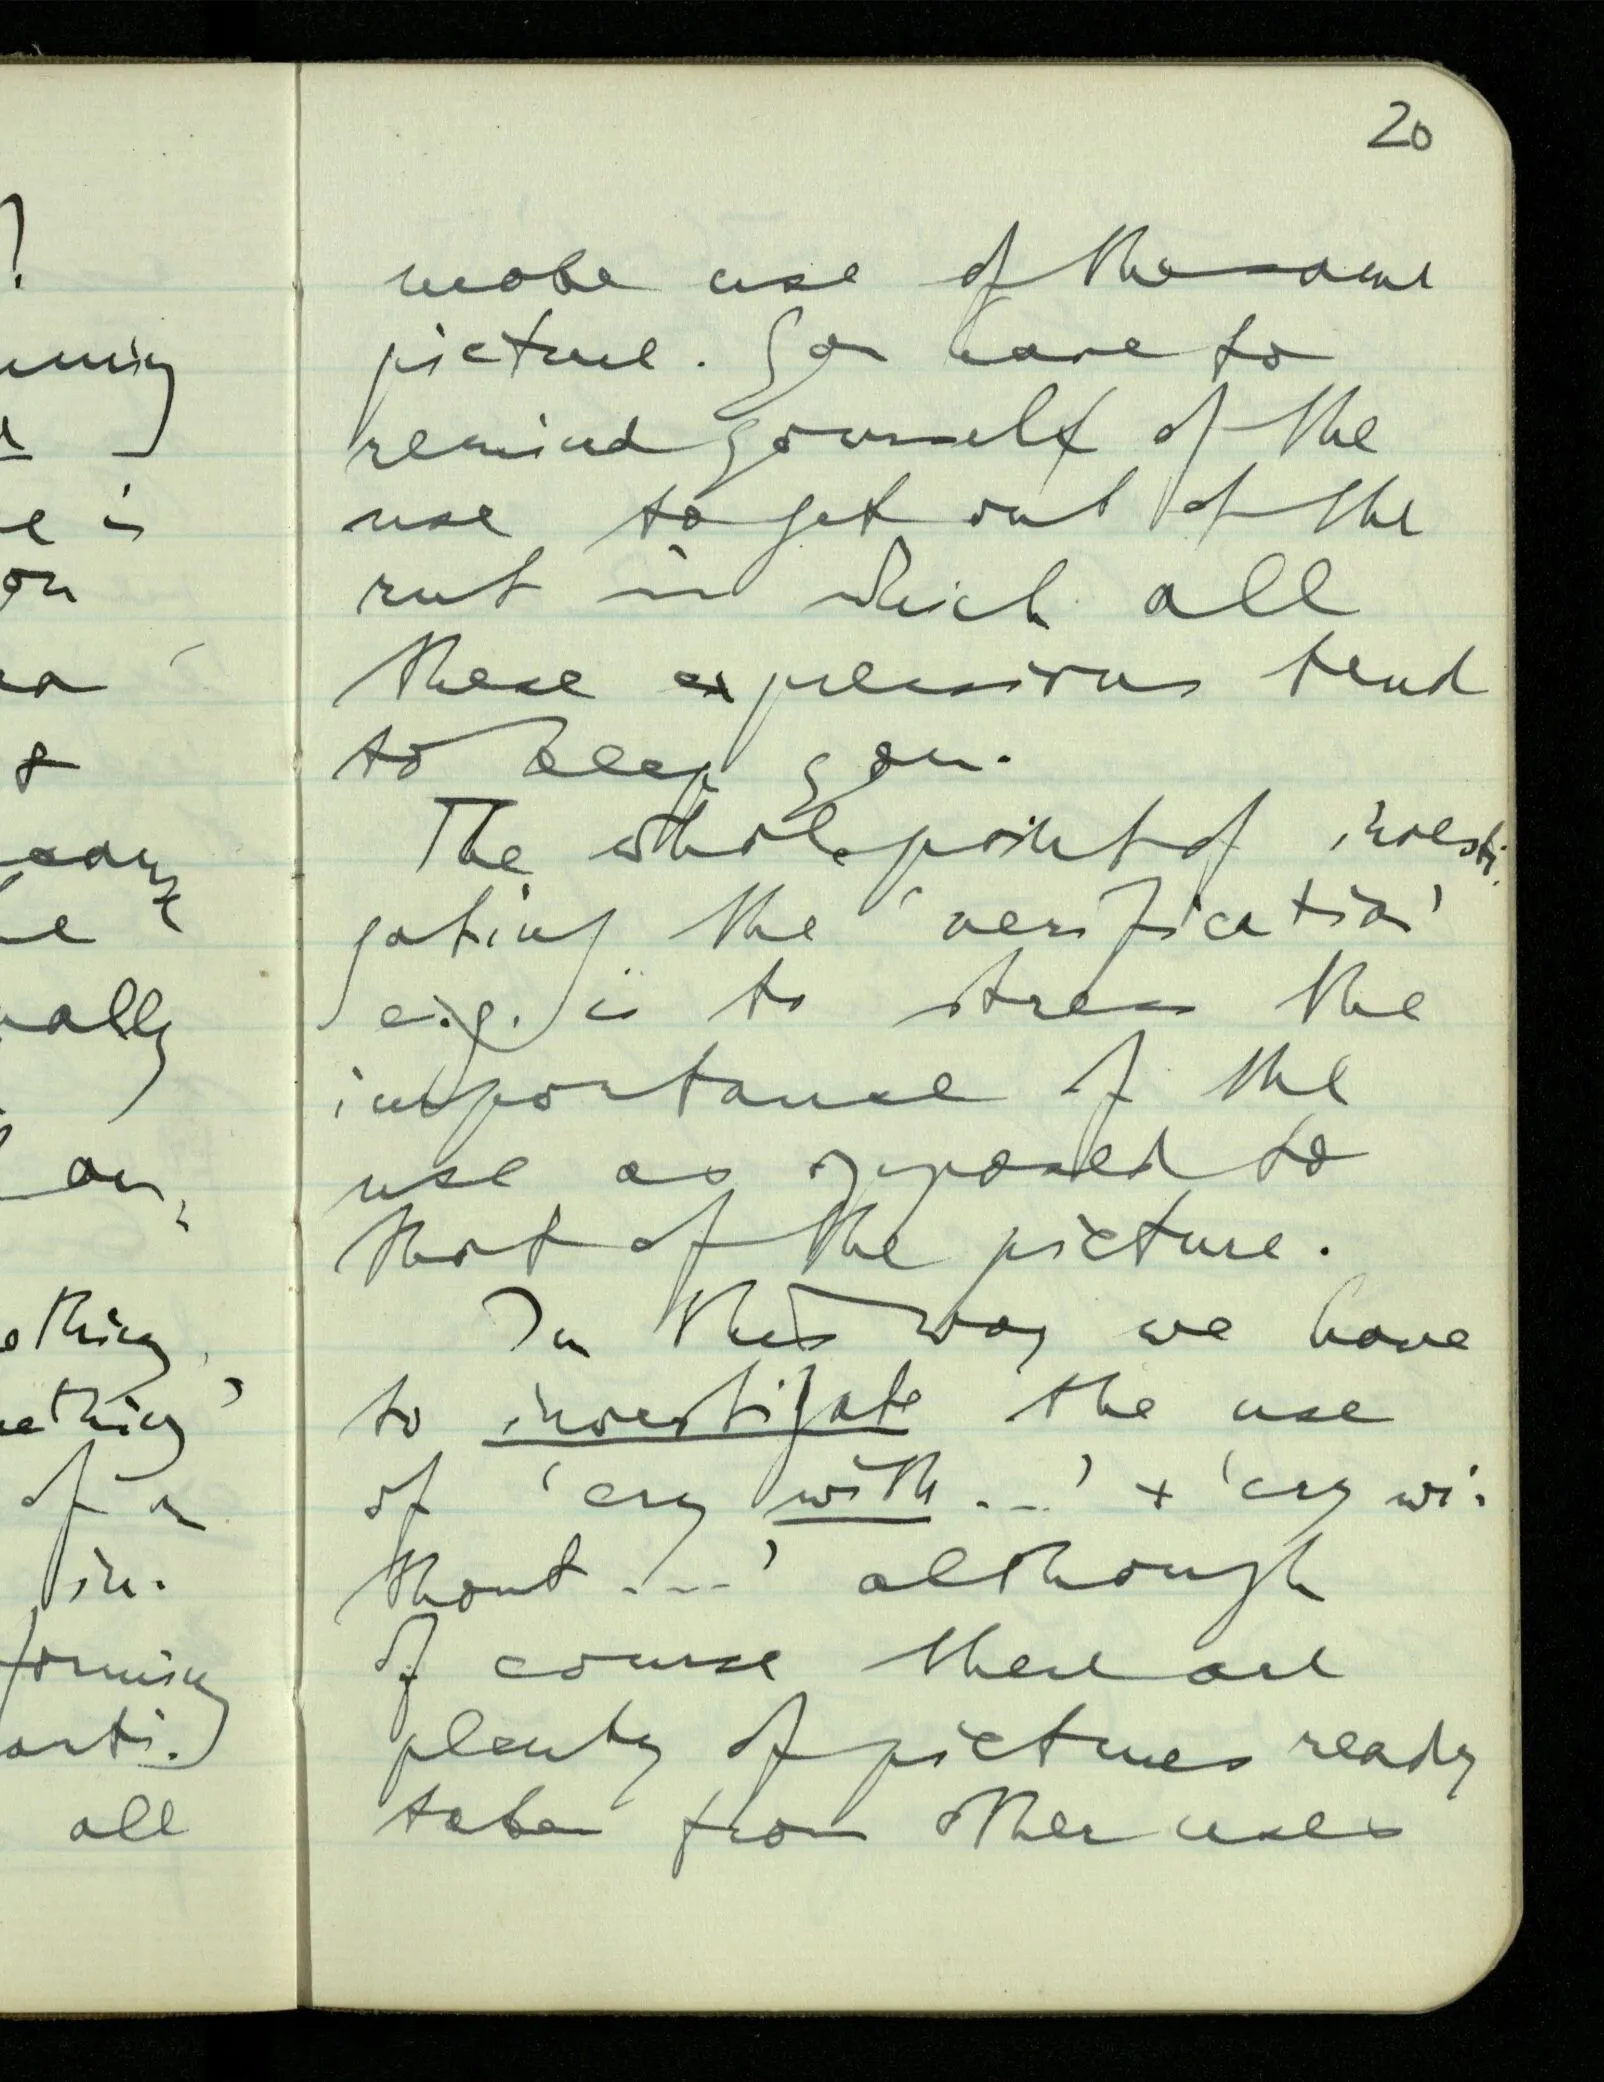 20
?
e is
on
all
make use of the same
picture. You have to
remind yourself of the
use to get out of the
rut in which all
these expressions tend
to keep you.
The whole point of investi-
gating the 'verification'
e.g. is to stress the
importance of the
use as opposed to
that of the picture.
In this way we have
to investigate the use
of 'cry with ...' + 'cry wi-
thout ....' although
of course there are
plenty of pictures ready
taken from other uses